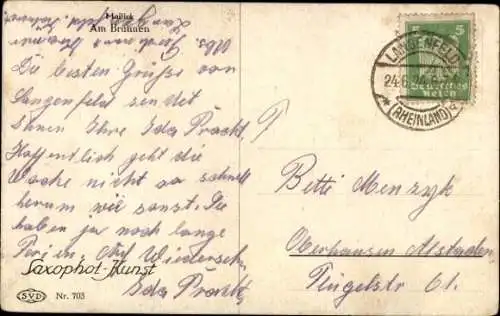 Mailick
Am Brunnen
Die besten Grüsse von
Langenfeld sendet
Ihnen Ihre Ida Pracht.
Hoffentlich geht die
Woche nicht so schnell
herum wie sonst. Sie
haben ja noch lange
Ferien. Auf Wiedersehn
Ida Pracht,
Saxophot-Kunst
SVD Nr. 703
5 5
Deutsches
Reich
LANGENFELD
24.6.
(RHEINLAND)
Betti Menzyk
Oberhausen Alstaden
Flügelstr 61.